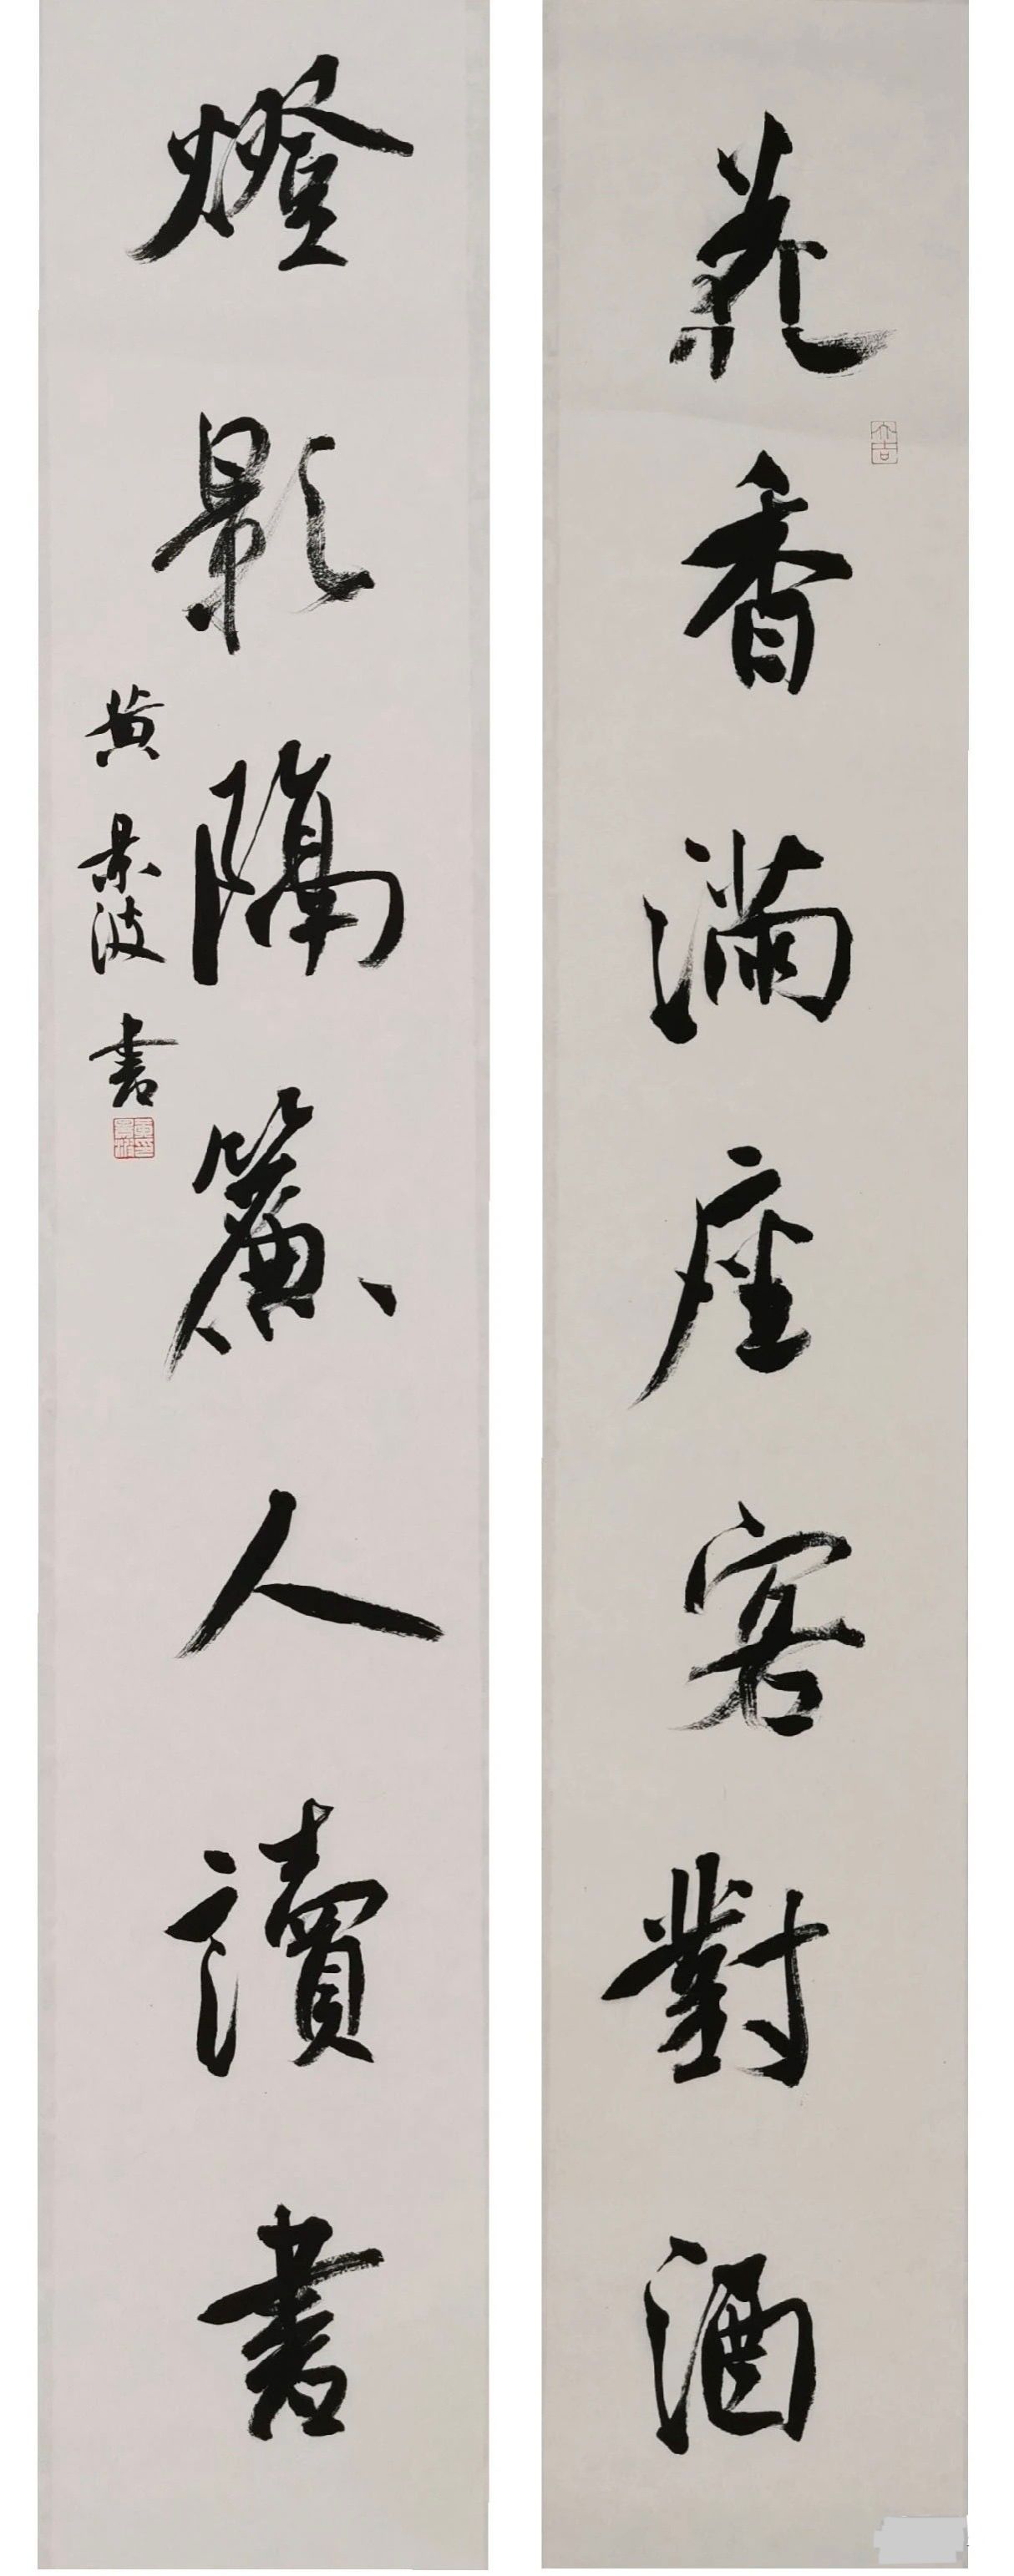 花香滿座客對酒
大吉
燈影隔簾人讀書
黄景波書